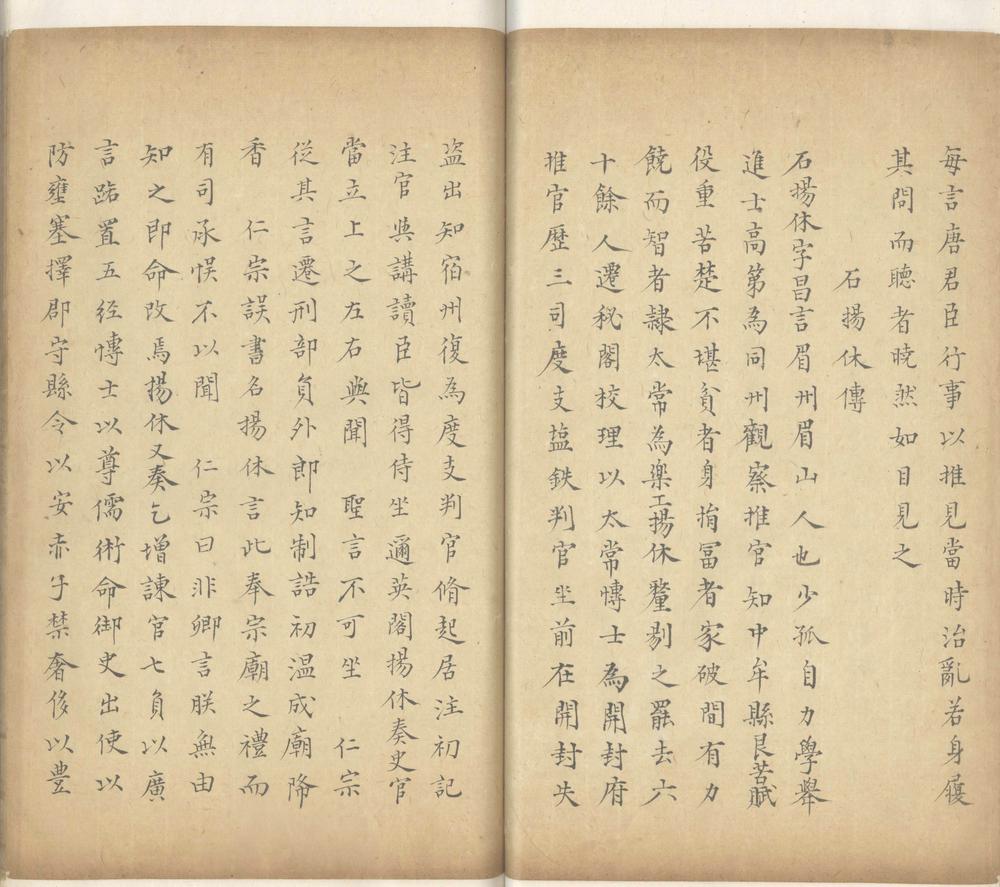 每言唐君臣行事以推見當時治亂若身履
其間而聴者暁然如目見之
石揚休傳
石揚休字昌言眉州眉山人也少孤自力學舉
進士髙第為同州觀察推官知中牟縣民苦賦
役重苦楚不堪貧者身揹冨者家破間有力
饒而智者隷太常為楽工揚休釐剔之罷去六
十餘人遷秘閣校理以太常愽士為開封府
推官歴三司度支塩鉄判官坐前在開封失
盗出知宿州復為度支判官脩起居注初記
注官與講讀臣皆得侍坐邇英閣揚休奏史官
當立上之左右與聞聖言不可坐仁宗
從其言遷刑部負外郎知制誥初温成廟降
香仁宗誤書名揚休言此奉宗廟之禮而
有司承悮不以聞仁宗曰非卿言朕無由
知之即命改焉揚休又奏乞增諌官七負以廣
言路置五経愽士以尊儒術命御史出使以
防壅塞擇郡守縣令以安赤子禁奢侈以豊